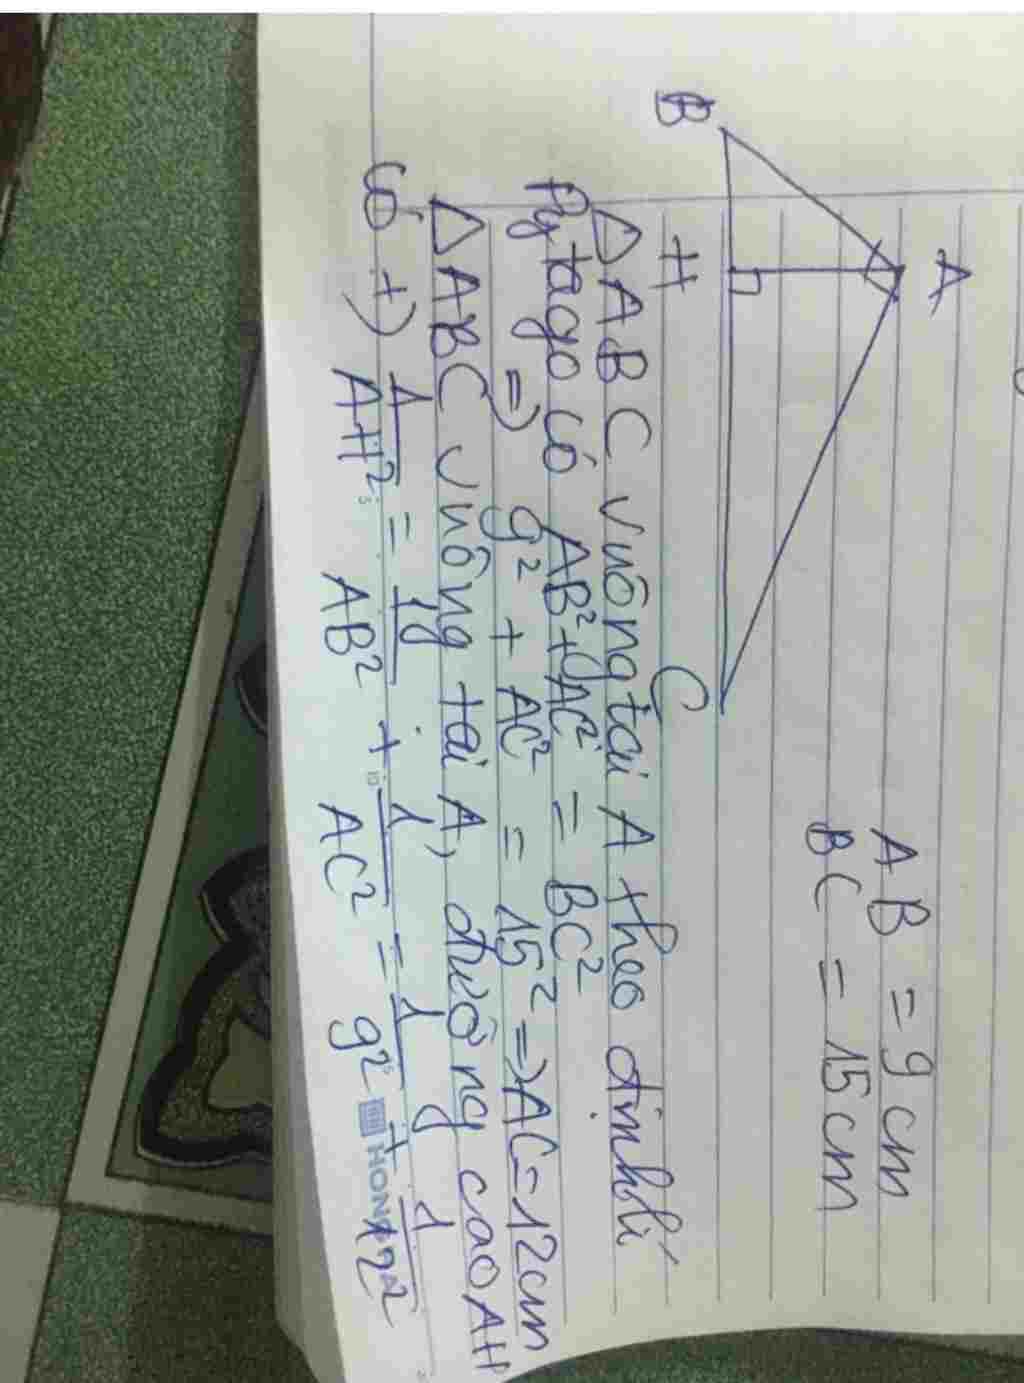 A
B
H
C
AB = 9cm
BC = 15cm
△ABC vuông tại A theo định lí
Pytago có AB² + AC² = BC²
=> 9² + AC² = 15² => AC = 12cm
△ABC vuông tại A, đường cao AH
có +) 1/AH² = 1/AB² + 1/AC² = 1/9² + 1/12²
HONG HA